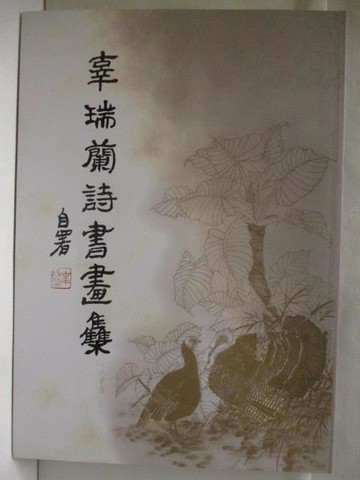 辜瑞蘭詩書畫集
自署